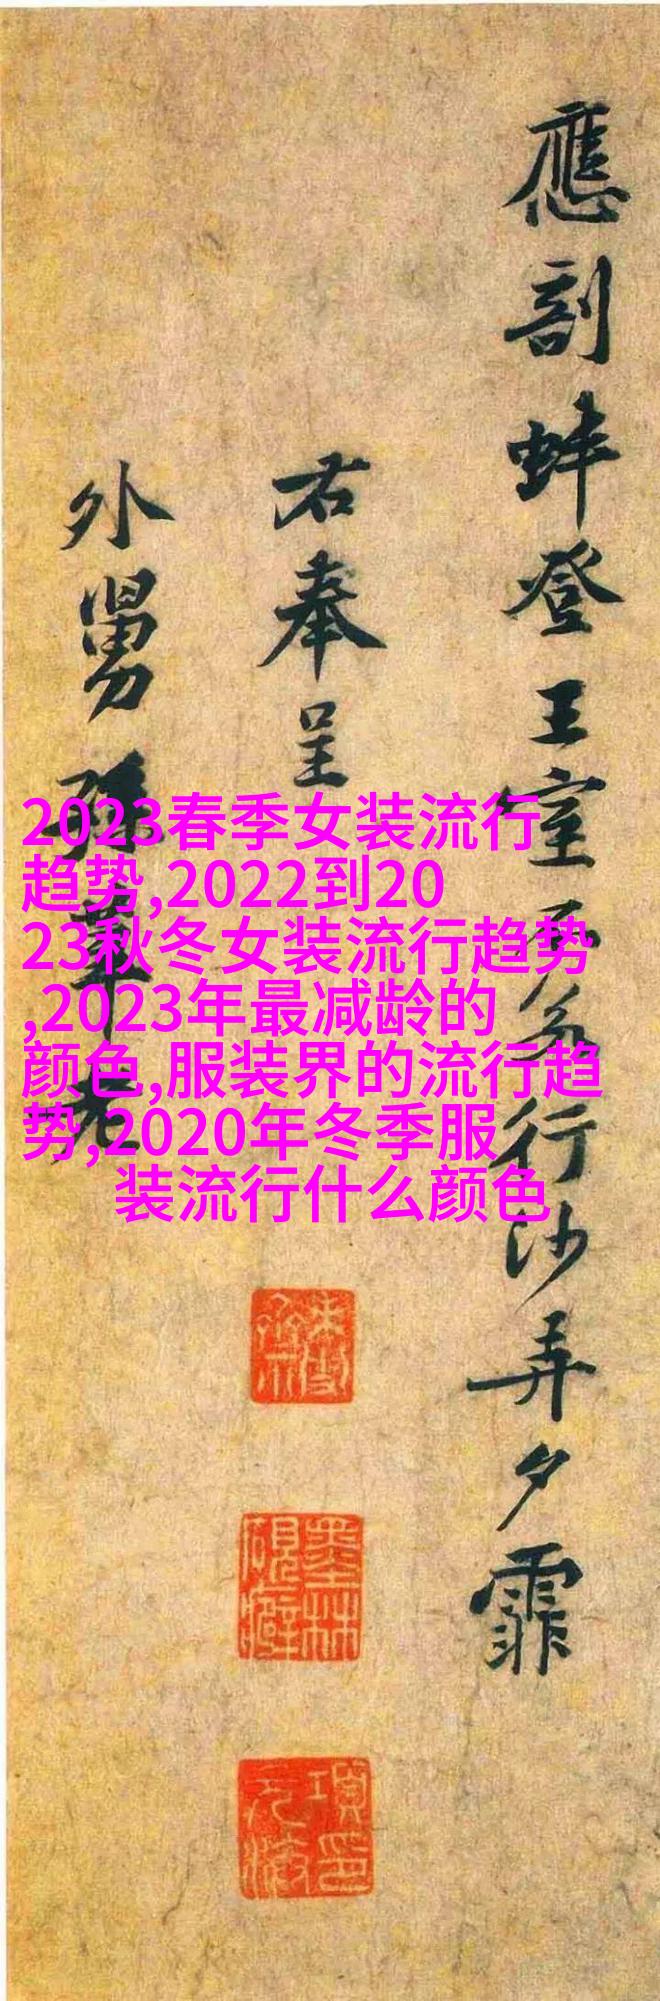 應剖蚌登王室行沙弄夕霏
右奉呈
外舅孫莘老
2023春季女装流行
趋势,2022到20
23秋冬女装流行趋势
,2023年最减龄的
颜色,服装界的流行趋
势,2020年冬季服
装流行什么颜色
墨林硯癖